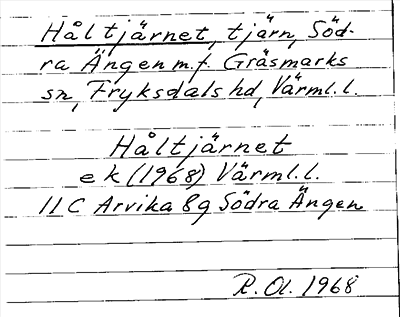 Håltjärnet, tjärn, Söd-
ra Ängen m.f. Gräsmarks
sn, Fryksdals hd, Värml.l.
Håltjärnet
e k (1968) Värml.l.
11 C Arvika 8g Södra Ängen
R. Ol. 1968